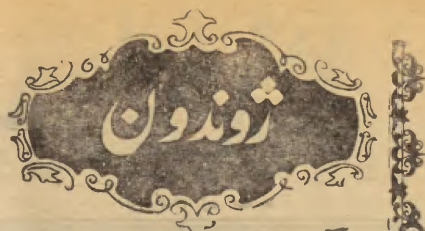 ژوندون